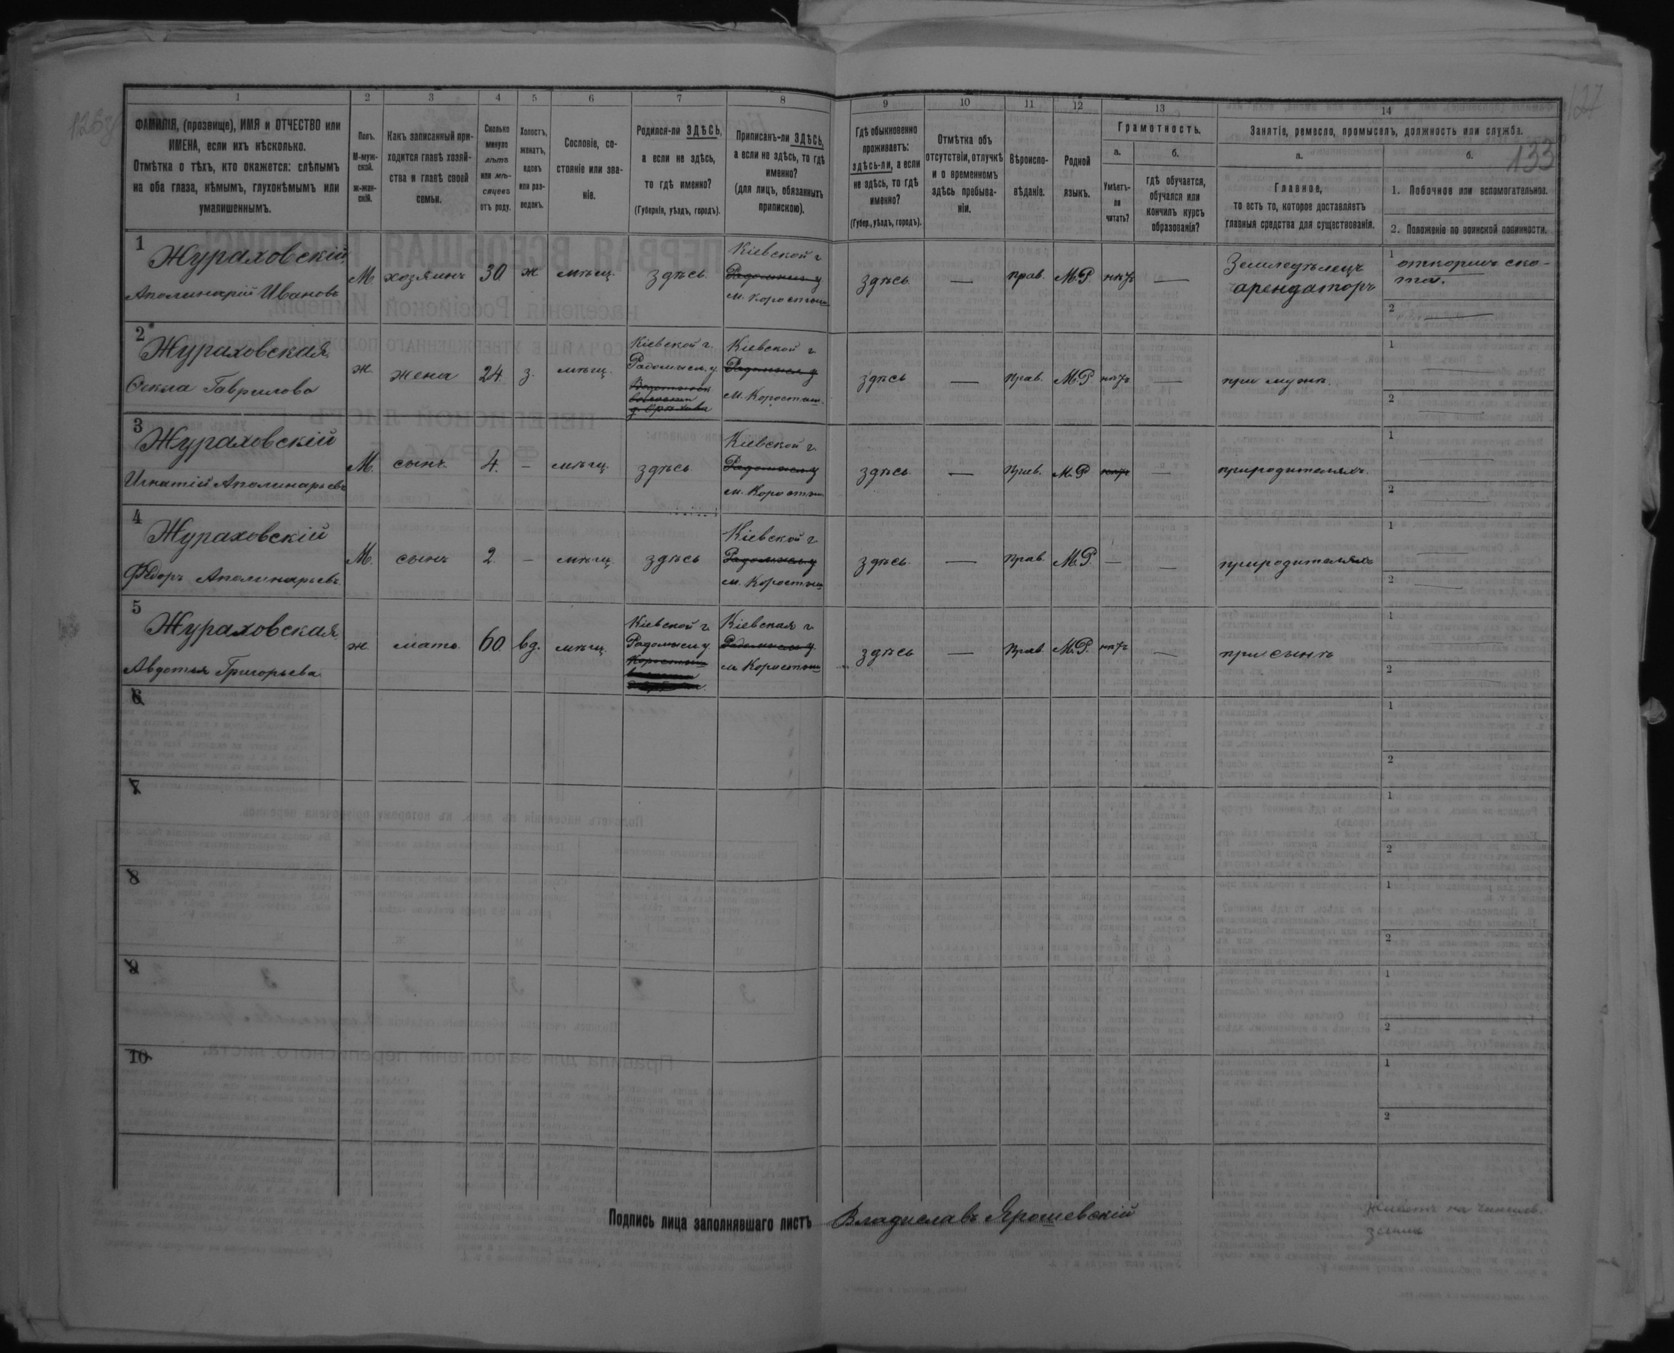 133
1 2 3 4 5 6 7 8 9 10 11 12 13 14
ФАМИЛІЯ, (прозвище), ИМЯ и ОТЧЕСТВО или
ИМЕНА, если ихъ нѣсколько.
Отмѣтка о тѣхъ, кто окажется: слѣпымъ
на оба глаза, нѣмымъ, глухонѣмымъ или
умалишеннымъ.
Полъ.
М-муж-
ской.
ж-жен-
скій.
Какъ записанный при-
ходится главѣ хозяй-
ства и главѣ своей
семьи.
Сколько
минуло
лѣтъ
или мѣ-
сяцевъ
отъ роду.
Холостъ,
женатъ,
вдовъ
или раз-
веденъ.
Сословіе, со-
стояніе или зва-
ніе.
Родился-ли ЗДѢСЬ,
а если не здѣсь,
то гдѣ именно?
(Губернія, уѣздъ, городъ).
Приписанъ-ли ЗДѢСЬ,
а если не здѣсь, то гдѣ
именно?
(для лицъ, обязанныхъ
припискою).
Гдѣ обыкновенно
проживаетъ:
здѣсь-ли, а если
не здѣсь, то гдѣ
именно?
(Губер., уѣздъ, городъ).
Отмѣтка объ
отсутствіи, отлучкѣ
и о временномъ
здѣсь пребыва-
ніи.
Вѣроиспо-
вѣданіе.
Родной
языкъ.
Грамотность.
а.
Умѣетъ-
ли
читать?
б.
гдѣ обучается,
обучался или
кончилъ курсъ
образованія?
Занятіе, ремесло, промыселъ, должность или служба.
а.
Главное,
то есть то, которое доставляетъ
главныя средства для существованія.
б.
1. Побочное или вспомогательное.
2. Положеніе по воинской повинности.
1
Жураховскій
Аполинарій Ивановъ
М. хозяинъ 30 ж мѣщ. здѣсь
Кіевской г.
Радомысл. у
м. Коростыш
здѣсь прав. М.Р. нѣтъ —
Земледѣлецъ
арендаторъ
1 откормъ ско-
та.
2
2
Жураховская
Фекла Гаврилова
ж жена 24 з. мѣщ.
Кіевской г.
Радомысл. у
Кіевской г
Радомысл у
м. Коростыш.
здѣсь — прав. М.Р. нѣтъ — при мужѣ.
1
2
3
Жураховскій
Игнатій Аполинарьевъ
М. сынъ 4. — мѣщ здѣсь
Кіевской г
Радомысл у
м. Коростыш
здѣсь — прав. М.Р нѣтъ — при родителяхъ.
1
2
4
Жураховскій
Ѳедоръ Аполинарьевъ
М. сынъ 2. — мѣщ здѣсь
Кіевской г
Радомысл у
м. Коростыш
здѣсь — прав М.Р. — — при родителяхъ
1
2
5
Жураховская
Авдотья Григорьева
ж мать 60 вд. мѣщ.
Кіевской г.
Радомысл у
Кіевская г
Радомысл у
м Коростыш
здѣсь — прав М.Р. нѣтъ — при сынѣ
1
2
6
1
2
7
1
2
8
1
2
9
1
2
10
1
2
Подпись лица заполнявшаго листъ Владиславъ Ярошевскій
землѣ